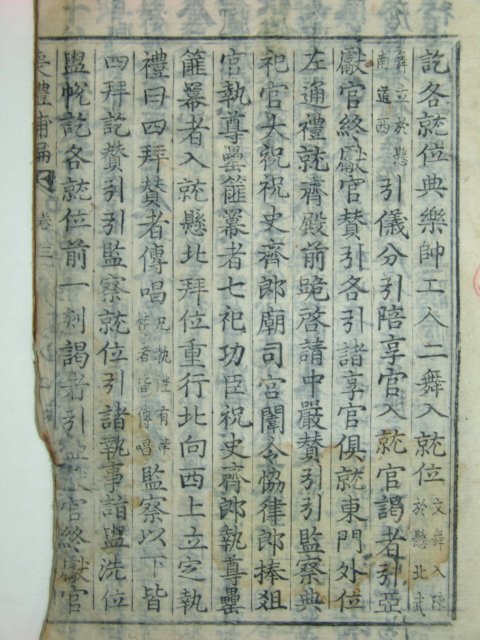 訖各就位典樂帥工人二舞入就位文舞入陳於懸北武
舞立於懸南道西引儀分引陪享官入就官謁者引亞
獻官終獻官贊引各引諸享官俱就東門外位
左通禮就齊殿前跪啓請中嚴贊引引監察典
祀官大祝祝史齊郎廟司宮闈令恊律郎捧俎
官執尊罍篚羃者七祀功臣祝史齊郎執尊罍
篚羃者入就懸北拜位重行北向西上立定執
禮曰四拜贊者傳唱凡執禮有辭贊者皆傳唱監察以下皆
四拜訖贊引引監察就位引諸執事詣盥洗位
盥帨訖各就位前一刻謁者引亞獻官終獻官
禮補編 卷三